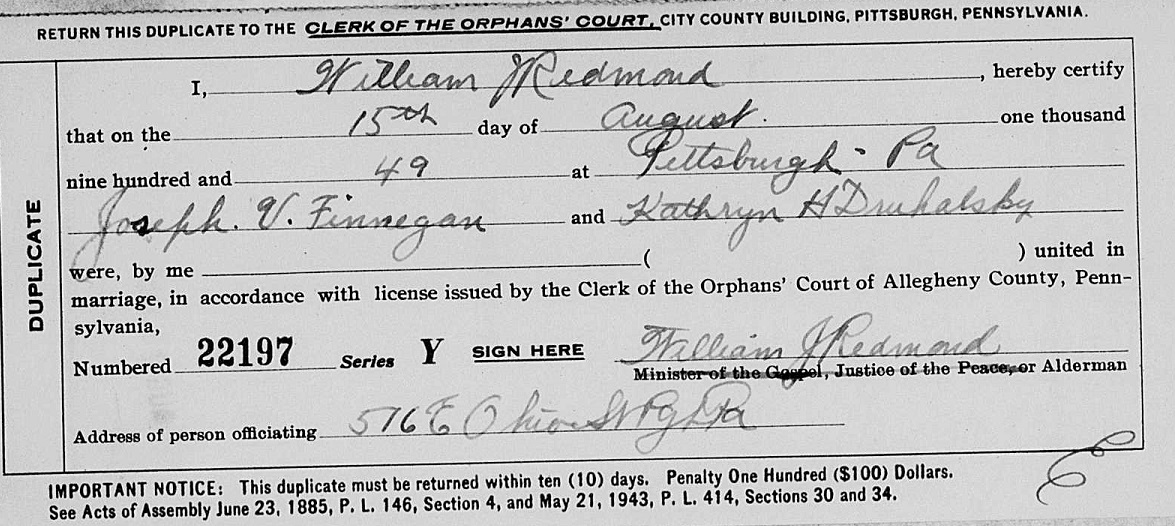 RETURN THIS DUPLICATE TO THE CLERK OF THE ORPHANS' COURT, CITY COUNTY BUILDING, PITTSBURGH, PENNSYLVANIA.
DUPLICATE
I, William J Redmond, hereby certify
that on the 15th day of August. one thousand
nine hundred and 49 at Pittsburgh - Pa
Joseph. V. Finnegan and Kathryn H Druhalsky
were, by me ( ) united in
marriage, in accordance with license issued by the Clerk of the Orphans' Court of Allegheny County, Penn-
sylvania,
Numbered 22197 Series Y SIGN HERE William J Redmond
Minister of the Gospel, Justice of the Peace, or Alderman
Address of person officiating 576 E Ohio St Pgh Pa
IMPORTANT NOTICE: This duplicate must be returned within ten (10) days. Penalty One Hundred ($100) Dollars.
See Acts of Assembly June 23, 1885, P. L. 146, Section 4, and May 21, 1943, P. L. 414, Sections 30 and 34.